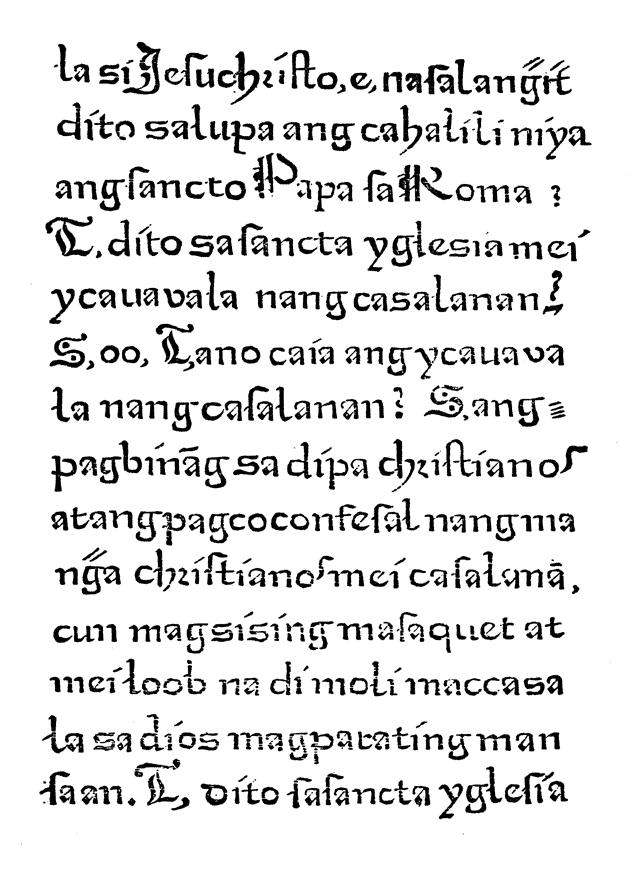 la si Jeſuchriſto, e, naſalangȓıt
díto salupa ang cahalili níya
angſancto Papa ſa Roma ?
T, díto saſancta yglesia mei
ycauavala nang casalanan?
S, oo, T, ano caía ang ycauava
la nang caſalanan? S, ang=
pagbínãg sa dípa chriſtíanos
atang pagcoconfeſal nang ma
nga chriſtíanos mei caſalanã,
cun magsísíng maſaquet at
meí loob na dí molí maccasa
la sa díos magparatíng man
ſaan. T, díto ſaſancta ygleſía